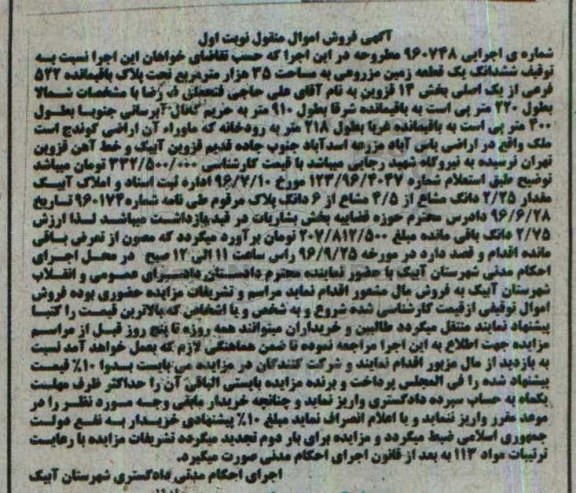 آگهی فروش اموال منقول نوبت اول
شماره ی اجرایی ۹۶۰۷۴۸ مطروحه در این اجرا که حسب تقاضای خواهان این اجرا نسبت به
توقیف ششدانگ یک قطعه زمین مزروعی به مساحت ۳۵ هزار مترمربع تحت پلاک باقیمانده ۵۲۲
فرعی از یک اصلی بخش ۱۳ قزوین به نام آقای علی حاجی فتحعلی رضا با مشخصات شمالا
بطول ۲۲۰ متر پی است به باقیمانده شرقا بطول ۹۱۰ متر به حریم کانال آبرسانی جنوبا بطول
۳۰۰ متر پی است به باقیمانده غربا بطول ۲۱۸ متر به رودخانه که ماوراء آن اراضی کوندج است
ملک واقع در اراضی یاس آباد مزرعه اسدآباد جنوب جاده قدیم قزوین آبیک و خط آهن قزوین
تهران نرسیده به نیروگاه شهید رجایی میباشد با قیمت کارشناسی ۳۳۲/۵۰۰/۰۰۰ تومان میباشد
توضیح طبق استعلام شماره ۱۲۳/۹۶/۴۰۳۷ مورخ ۹۶/۷/۱۰ اداره ثبت اسناد و املاک آبیک
مقدار ۲/۲۵ دانگ مشاع از ۴/۵ مشاع از ۶ دانگ پلاک مرقوم طی نامه شماره ۹۶۰۱۷۴ تاریخ
۹۶/۶/۲۸ دادرس محترم حوزه قضاییه بخش بشاریات در قید بازداشت میباشد لذا ارزش
۲/۷۵ دانگ باقی مانده مبلغ ۲۰۷/۸۱۲/۵۰۰ تومان برآورد میگردد که مصون از تعرض باقی
مانده اقدام و قصد دارد در مورخه ۹۶/۹/۲۵ راس ساعت ۱۱ الی ۱۲ صبح در محل اجرای
احکام مدنی شهرستان آبیک با حضور نماینده محترم دادستان دادسرای عمومی و انقلاب
شهرستان آبیک به فروش مال مشعور اقدام نماید مراسم و تشریفات مزایده حضوری بوده فروش
اموال توقیفی ازقیمت کارشناسی شده شروع و به شخص و یا اشخاص که بالاترین قیمت را کتبا
پیشنهاد نمایند منتقل میگردد طالبین و خریداران میتوانند همه روزه تا پنج روز قبل از مراسم
مزایده جهت اطلاع به این اجرا مراجعه نموده تا ضمن هماهنگی لازم که بعمل خواهد آمد نسبت
به بازدید از مال مزبور اقدام نمایند و شرکت کنندگان در مزایده می بایست بدوا ۱۰٪ قیمت
پیشنهاد شده را فی المجلس پرداخت و برنده مزایده بایستی الباقی آن را حداکثر ظرف مهلت
یکماه به حساب سپرده دادگستری واریز نماید و چنانچه خریدار مابقی وجه مورد نظر را در
موعد مقرر واریز ننماید و یا اعلام انصراف نماید مبلغ ۱۰٪ پیشنهادی خریدار به نفع دولت
جمهوری اسلامی ضبط میگردد و مزایده برای بار دوم تجدید میگردد تشریفات مزایده با رعایت
ترتیبات مواد ۱۱۳ به بعد از قانون اجرای احکام مدنی صورت میگیرد.
اجرای احکام مدنی دادگستری شهرستان آبیک